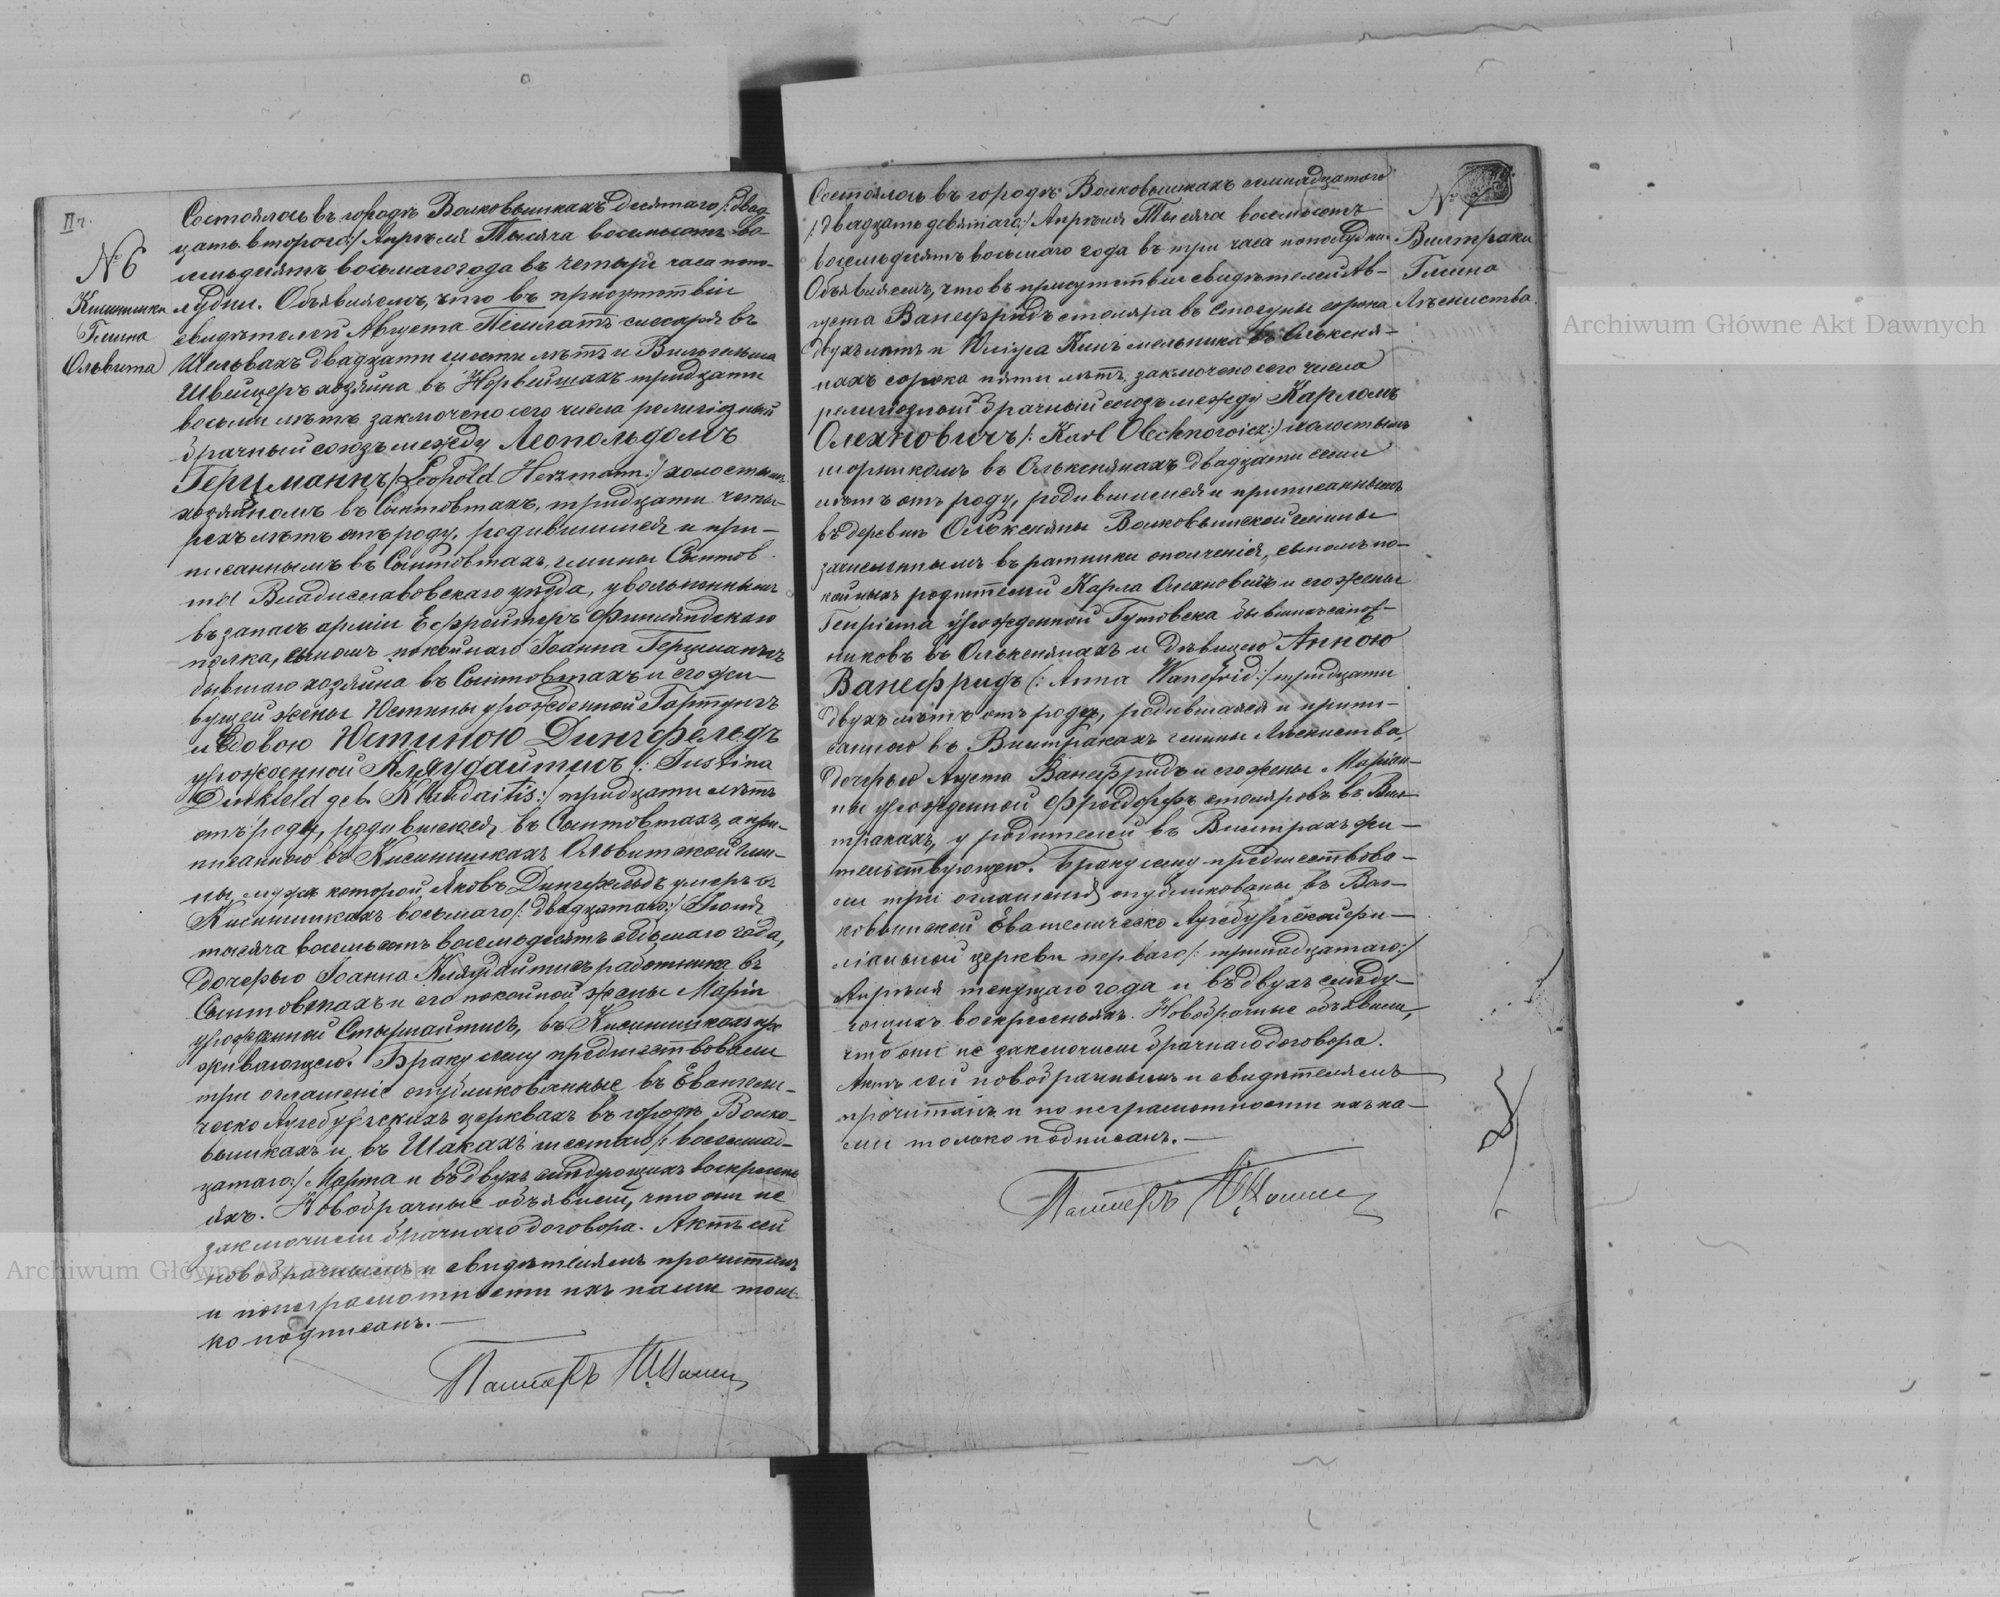 IIч.
№ 6
Кисинишки
Гмина
Ольвита
Состоялось въ городѣ Волковышкахъ десятаго /:двад-
цать втораго:/ Апрѣля Тысяча восемьсотъ во-
семьдесятъ восьмаго года въ четыри часа попо-
лудни. Объявляемъ, что въ присутствіи
свидѣтелей Августа слесаря въ
Шельвахъ двадцати шести лѣтъ и Вильгельма
Швейцеръ хозяина въ Нервейшахъ тридцати
восьми лѣтъ заключено сего числа религіозный
брачный союзъ между Леопольдомъ
Герцманнъ /:Leopold Herzmann:/ холостымъ
хозяиномъ въ Сынтовтахъ, тридцати четы-
рехъ лѣтъ отъ роду, родившимся и при-
писаннымъ въ Сынтовтахъ, гмины Сынтов-
ты Владиславовскаго уѣзда, уволеннымъ
въ запасъ арміи Ефрейторъ Финляндскаго
полка, сыномъ покойнаго Іоанна Герцманнъ
бывшаго хозяина въ Сынтовтахъ и его жи-
вущей жены Юстины урожденной Гартунгъ
и вдовою Юстиною Дингфельдъ
урожденной Кляудайтисъ /: Justina
Dinkfeld geb. Klaudaitis:/ тридцати лѣтъ
отъ роду, родившеюся въ Сынтовтахъ, а при-
писанною въ Кисинишкахъ Ольвитской гми-
ны, мужъ которой Яковъ Дингфельдъ умеръ въ
Кисинишкахъ восьмаго /: двадцатаго:/ Іюня
тысяча восемьсотъ восемьдесятъ седьмаго года,
дочерью Іоанна Кляудайтисъ работника въ
Сынтовтахъ и его покойной жены Маріи
урожденной въ Кисинишкахъ про-
живающею. Браку сему предшествовали
три оглашеніе опубликованные въ Евангели-
ческо Аугсбургскихъ церквахъ въ городѣ Волко-
вышкахъ и въ Шакахъ шестаго /: восемнад-
цатаго:/ Марта и въ двухъ слѣдующихъ воскресень-
яхъ. Новобрачные объявили, что они не
заключили брачнаго договора. Актъ сей
новобрачнымъ и свидѣтелямъ прочитанъ
и по неграмотности ихъ нами толь-
ко подписанъ. —
Пасторъ
Состоялось въ городѣ Волковышкахъ семнадцатого
/:двадцать девятаго:/ Апрѣля Тысяча восемьсотъ
восемьдесятъ восьмаго года въ три часа пополудни.
Объявляемъ, что въ присутствіи свидѣтелей Ав-
густа Ванефридъ столяра въ сорока
двухъ лѣтъ и Юліуса Кинъ мельника въ Олькеня-
нахъ сорока пяти лѣтъ, заключено сего числа
религіозный брачный союзъ между Карломъ
Олехновичъ /: Karl Olechnowicz:/ холостымъ
шорникомъ въ Олькснянахъ двадцати семи
лѣтъ отъ роду, родившимся и приписаннымъ
въ деревни Олькеняны Волковышской гмины
зачисленнымъ въ ратники ополченія, сыномъ по-
койныхъ родителей Карла Олехновичъ и его жены
Генріета урожденной Гутовска бывшихъ сапож-
никовъ въ Олькенянахъ и дѣвицею Анною
Ванефридъ /: Anna Wanefrid:/ тридцати
двухъ лѣтъ отъ роду, родившаяся и припи-
санною въ Вилтракахъ гмины
дочерью Агуста Ванефридъ и его жены Маріан-
ны урожденной столяровъ въ Вил-
тракахъ, у родителей въ Вилтрахъ жи-
тельствующею. Браку сему предшествова-
ли три оглашенія опубликованы въ Вол-
ковышской Евангелическо Аугсбургской фи-
ліальной церкви перваго /: тринадцатаго:/
Апрѣля текущаго года и въ двухъ слѣду-
ющихъ воскресеньяхъ. Новобрачные объявили,
что они не заключили брачнаго договора.
Актъ сей новобрачнымъ и свидѣтелямъ
прочитанъ и по неграмотности ихъ на-
ми только подписанъ. —
Пасторъ
№ 7
Вилтраки
Гмина
Archiwum Główne Akt Dawnych
Archiwum Główne Akt Dawnych